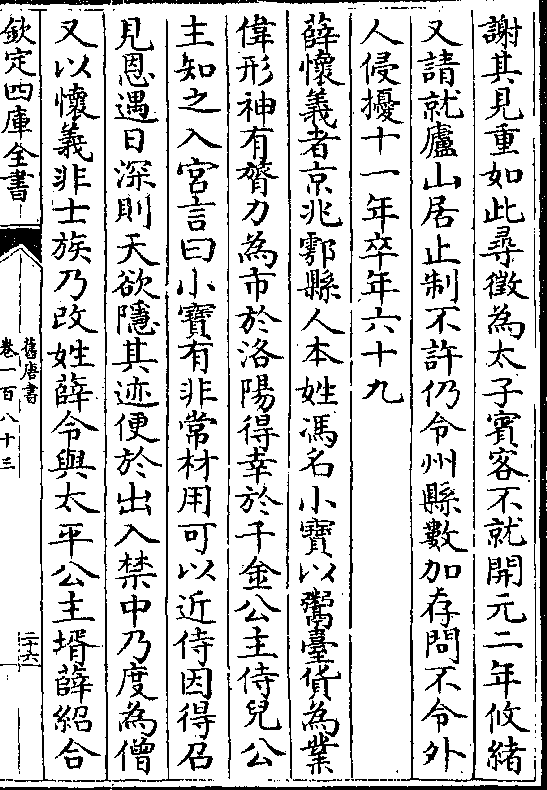 謝其見重如此尋徵為太子賓客不就開元二年攸緒
又請就廬山居止制不許仍令州縣數加存問不令外
人侵擾十一年卒年六十九
薛懷義者京兆鄠縣人本姓馮名小寶以鬻臺貨為業
偉形神有膂力為市於洛陽得幸於千金公主侍兒公
主知之入宮言曰小寶有非常材用可以近侍因得召
見恩遇日深則天欲隱其迹便於出入禁中乃度為僧
又以懷義非士族乃改姓薛令與太平公主壻薛紹合
欽定四庫全書
舊唐書
卷一百八十三
二十六